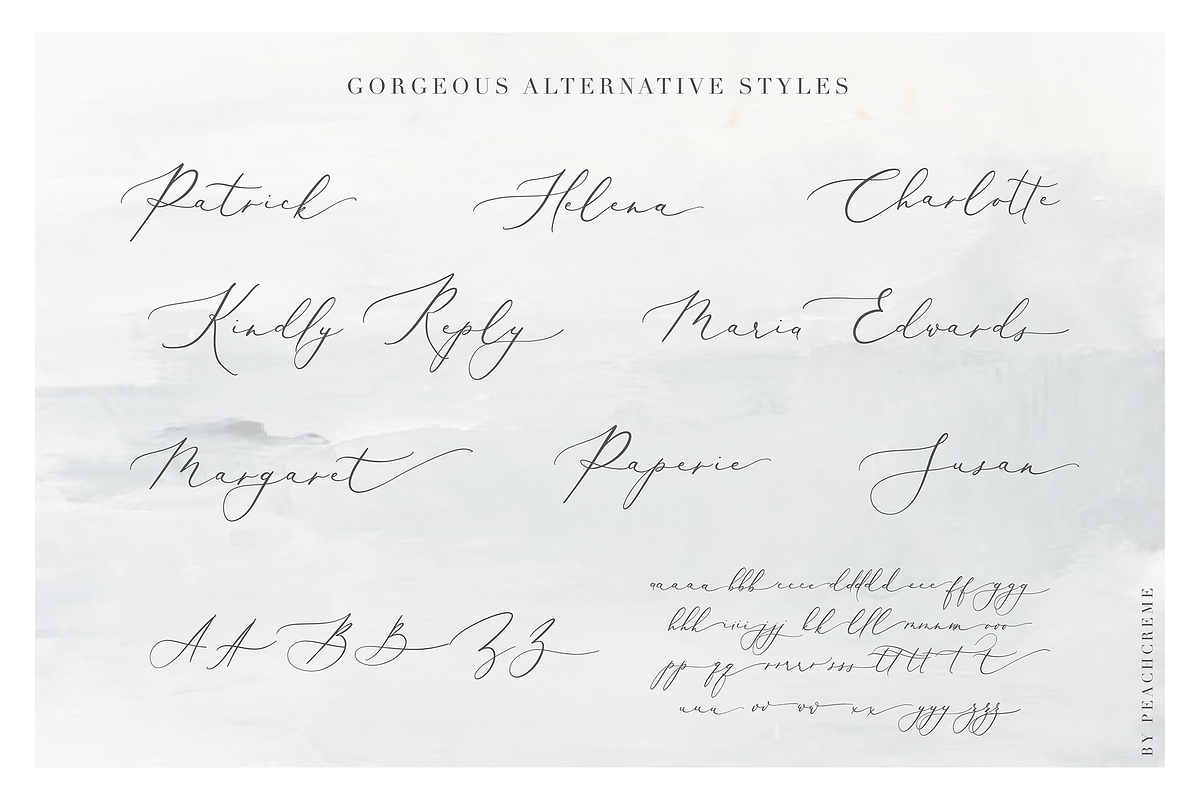 GORGEOUS ALTERNATIVE STYLES
Patrick Helena Charlotte
Kindly Reply Maria Edwards
Margaret Paperie Susan
A A B B Z Z
aaaaa bbb cccc ddddd eee ff ggg
hhh iiii jjj kk lll mmnm ooo
pp qq rrrrr sss tt tt t t
uuu vv ww xx yyy zzz
BY PEACHCREME